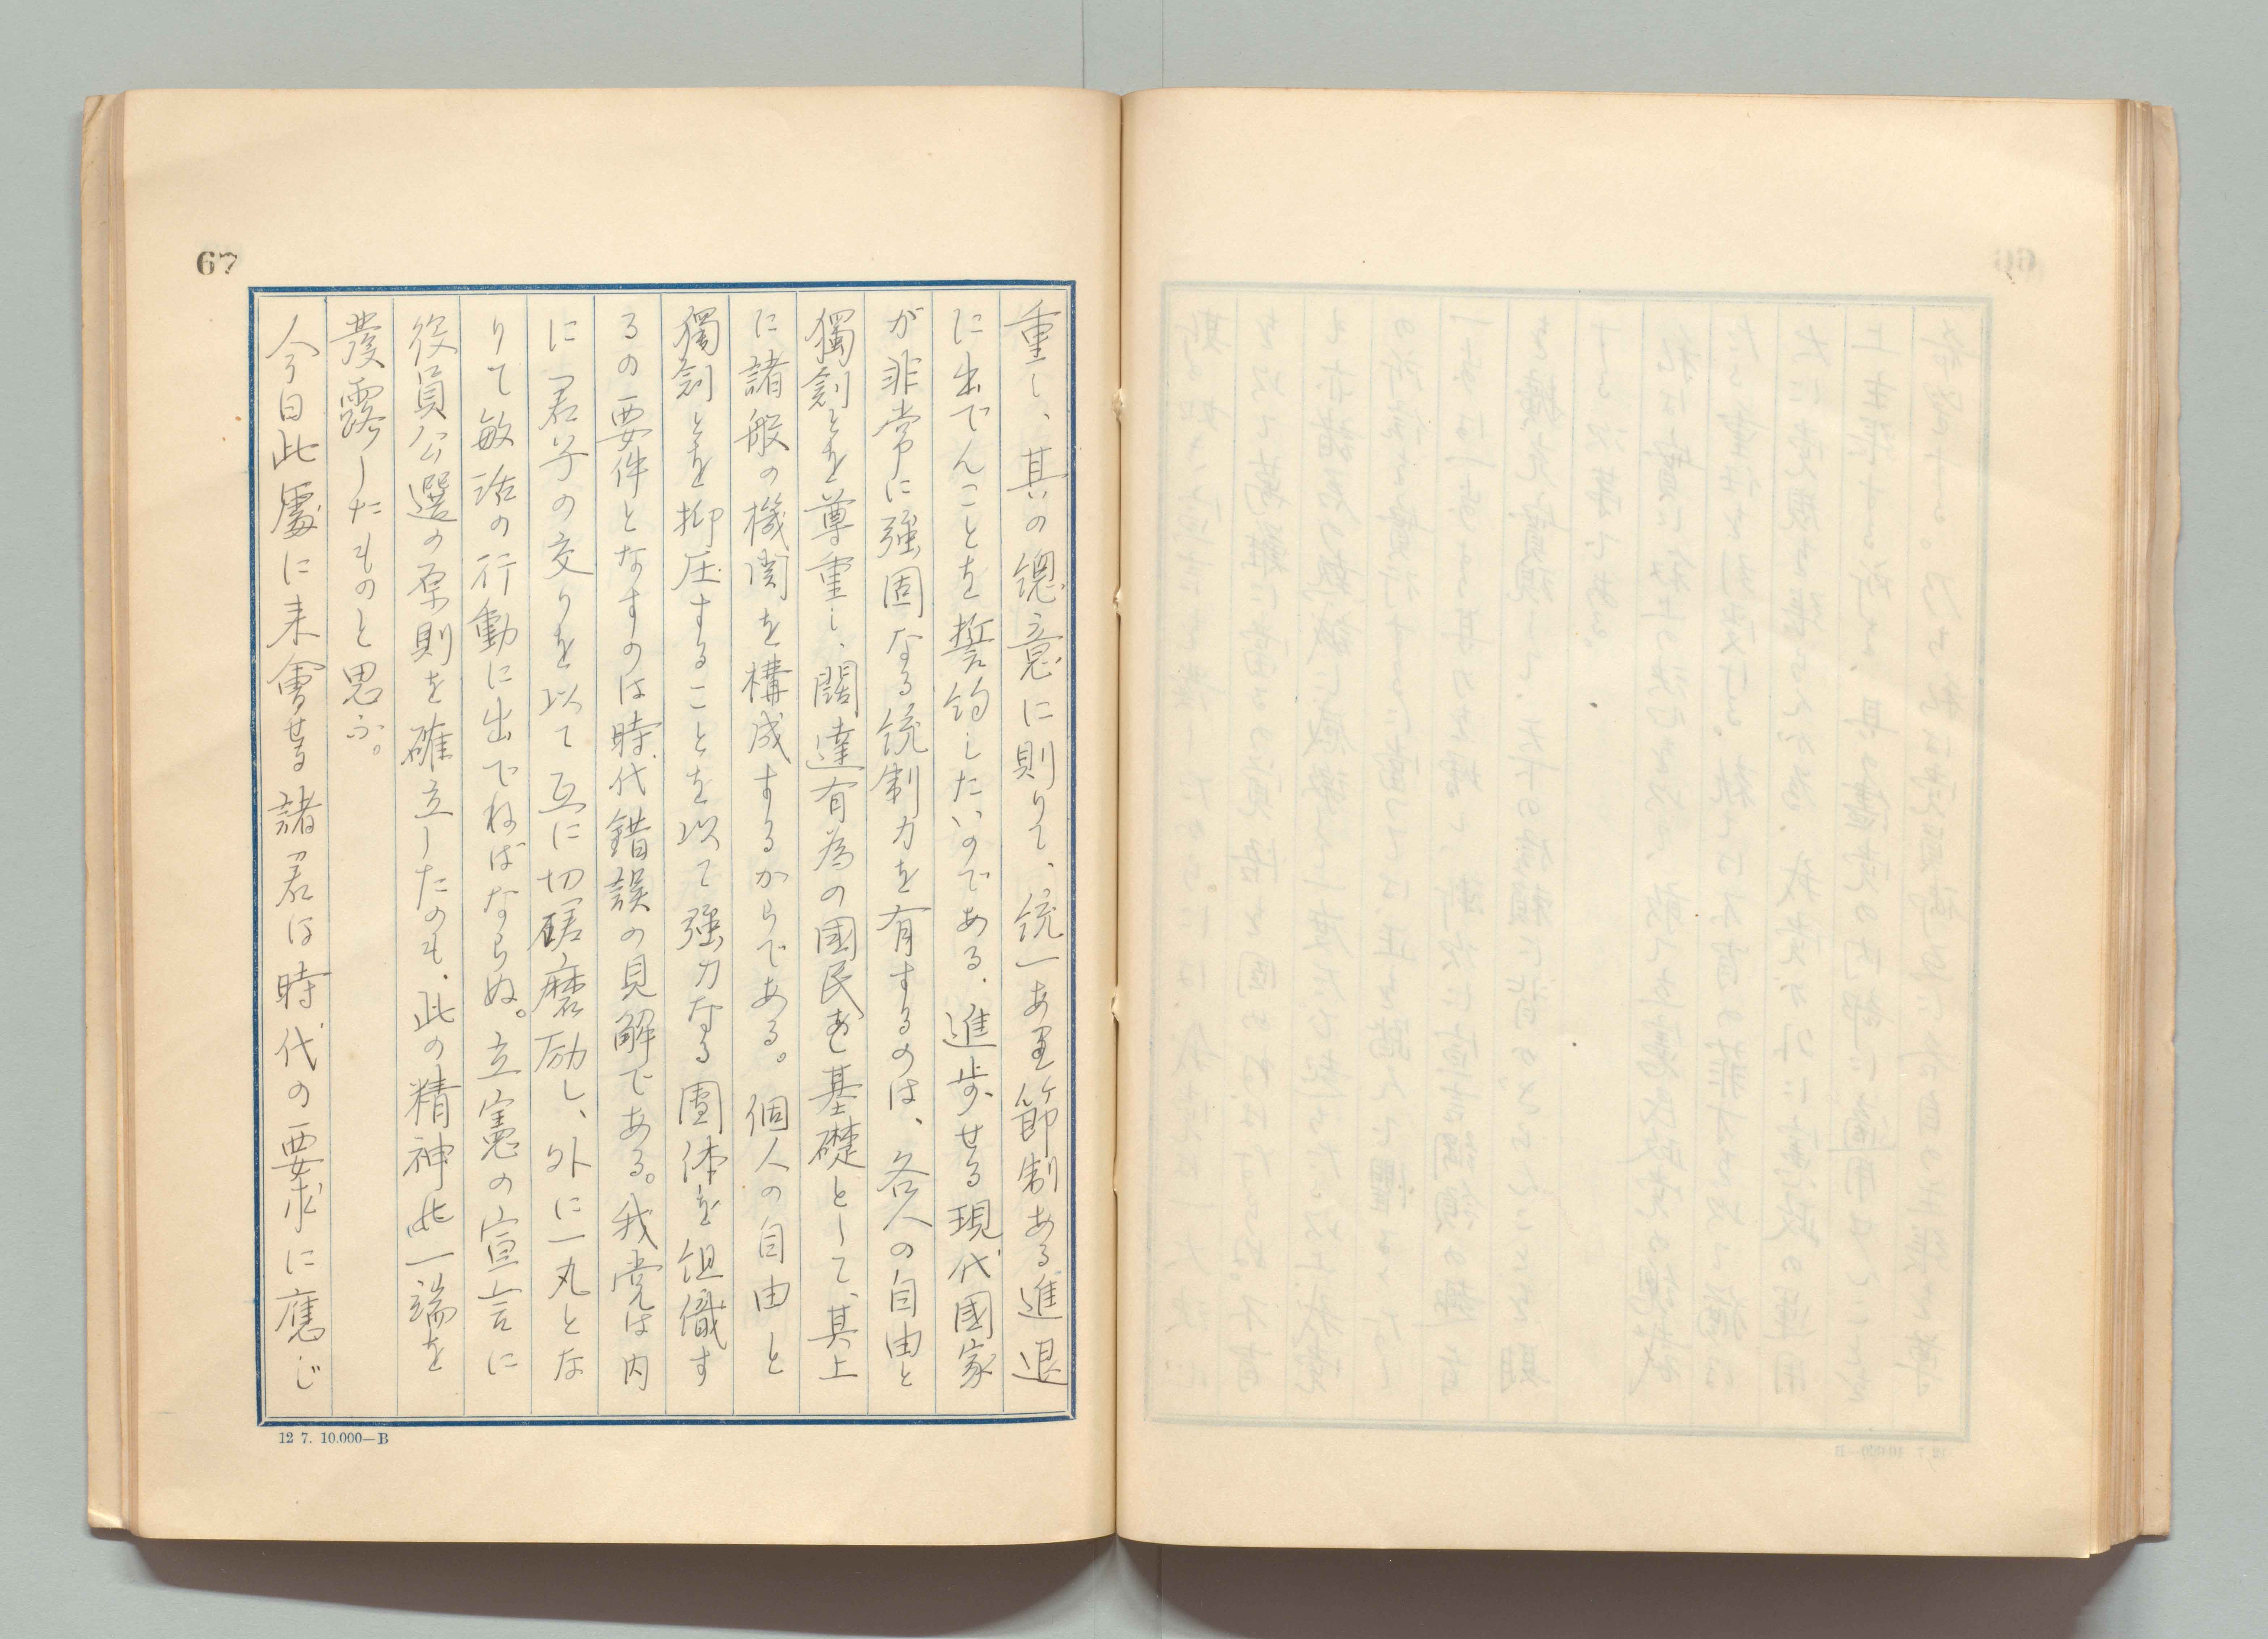 67
重し、其の總意に則りて、統一あり節制ある進退
に出でんことを誓約したいのである。進歩せる現代國家
が非常に強固なる統制力を有するのは、各人の自由と
獨創とを尊重し、闊達有為の國民を基礎として、其上
に諸般の機関を構成するからである。個人の自由と
獨創とを抑圧することを以て強力なる團体を組織す
るの要件となすのは時代錯誤の見解である。我党は内
に君子の交りを以て互に切磋磨励し、外に一丸とな
りて敏活の行動に出でねばならぬ。立憲の宣言に
役員公選の原則を確立したのも、此の精神の一端を
發露したものと思ふ。
今日此處に来會せる諸君は時代の要求に應じ
12 7. 10.000—B